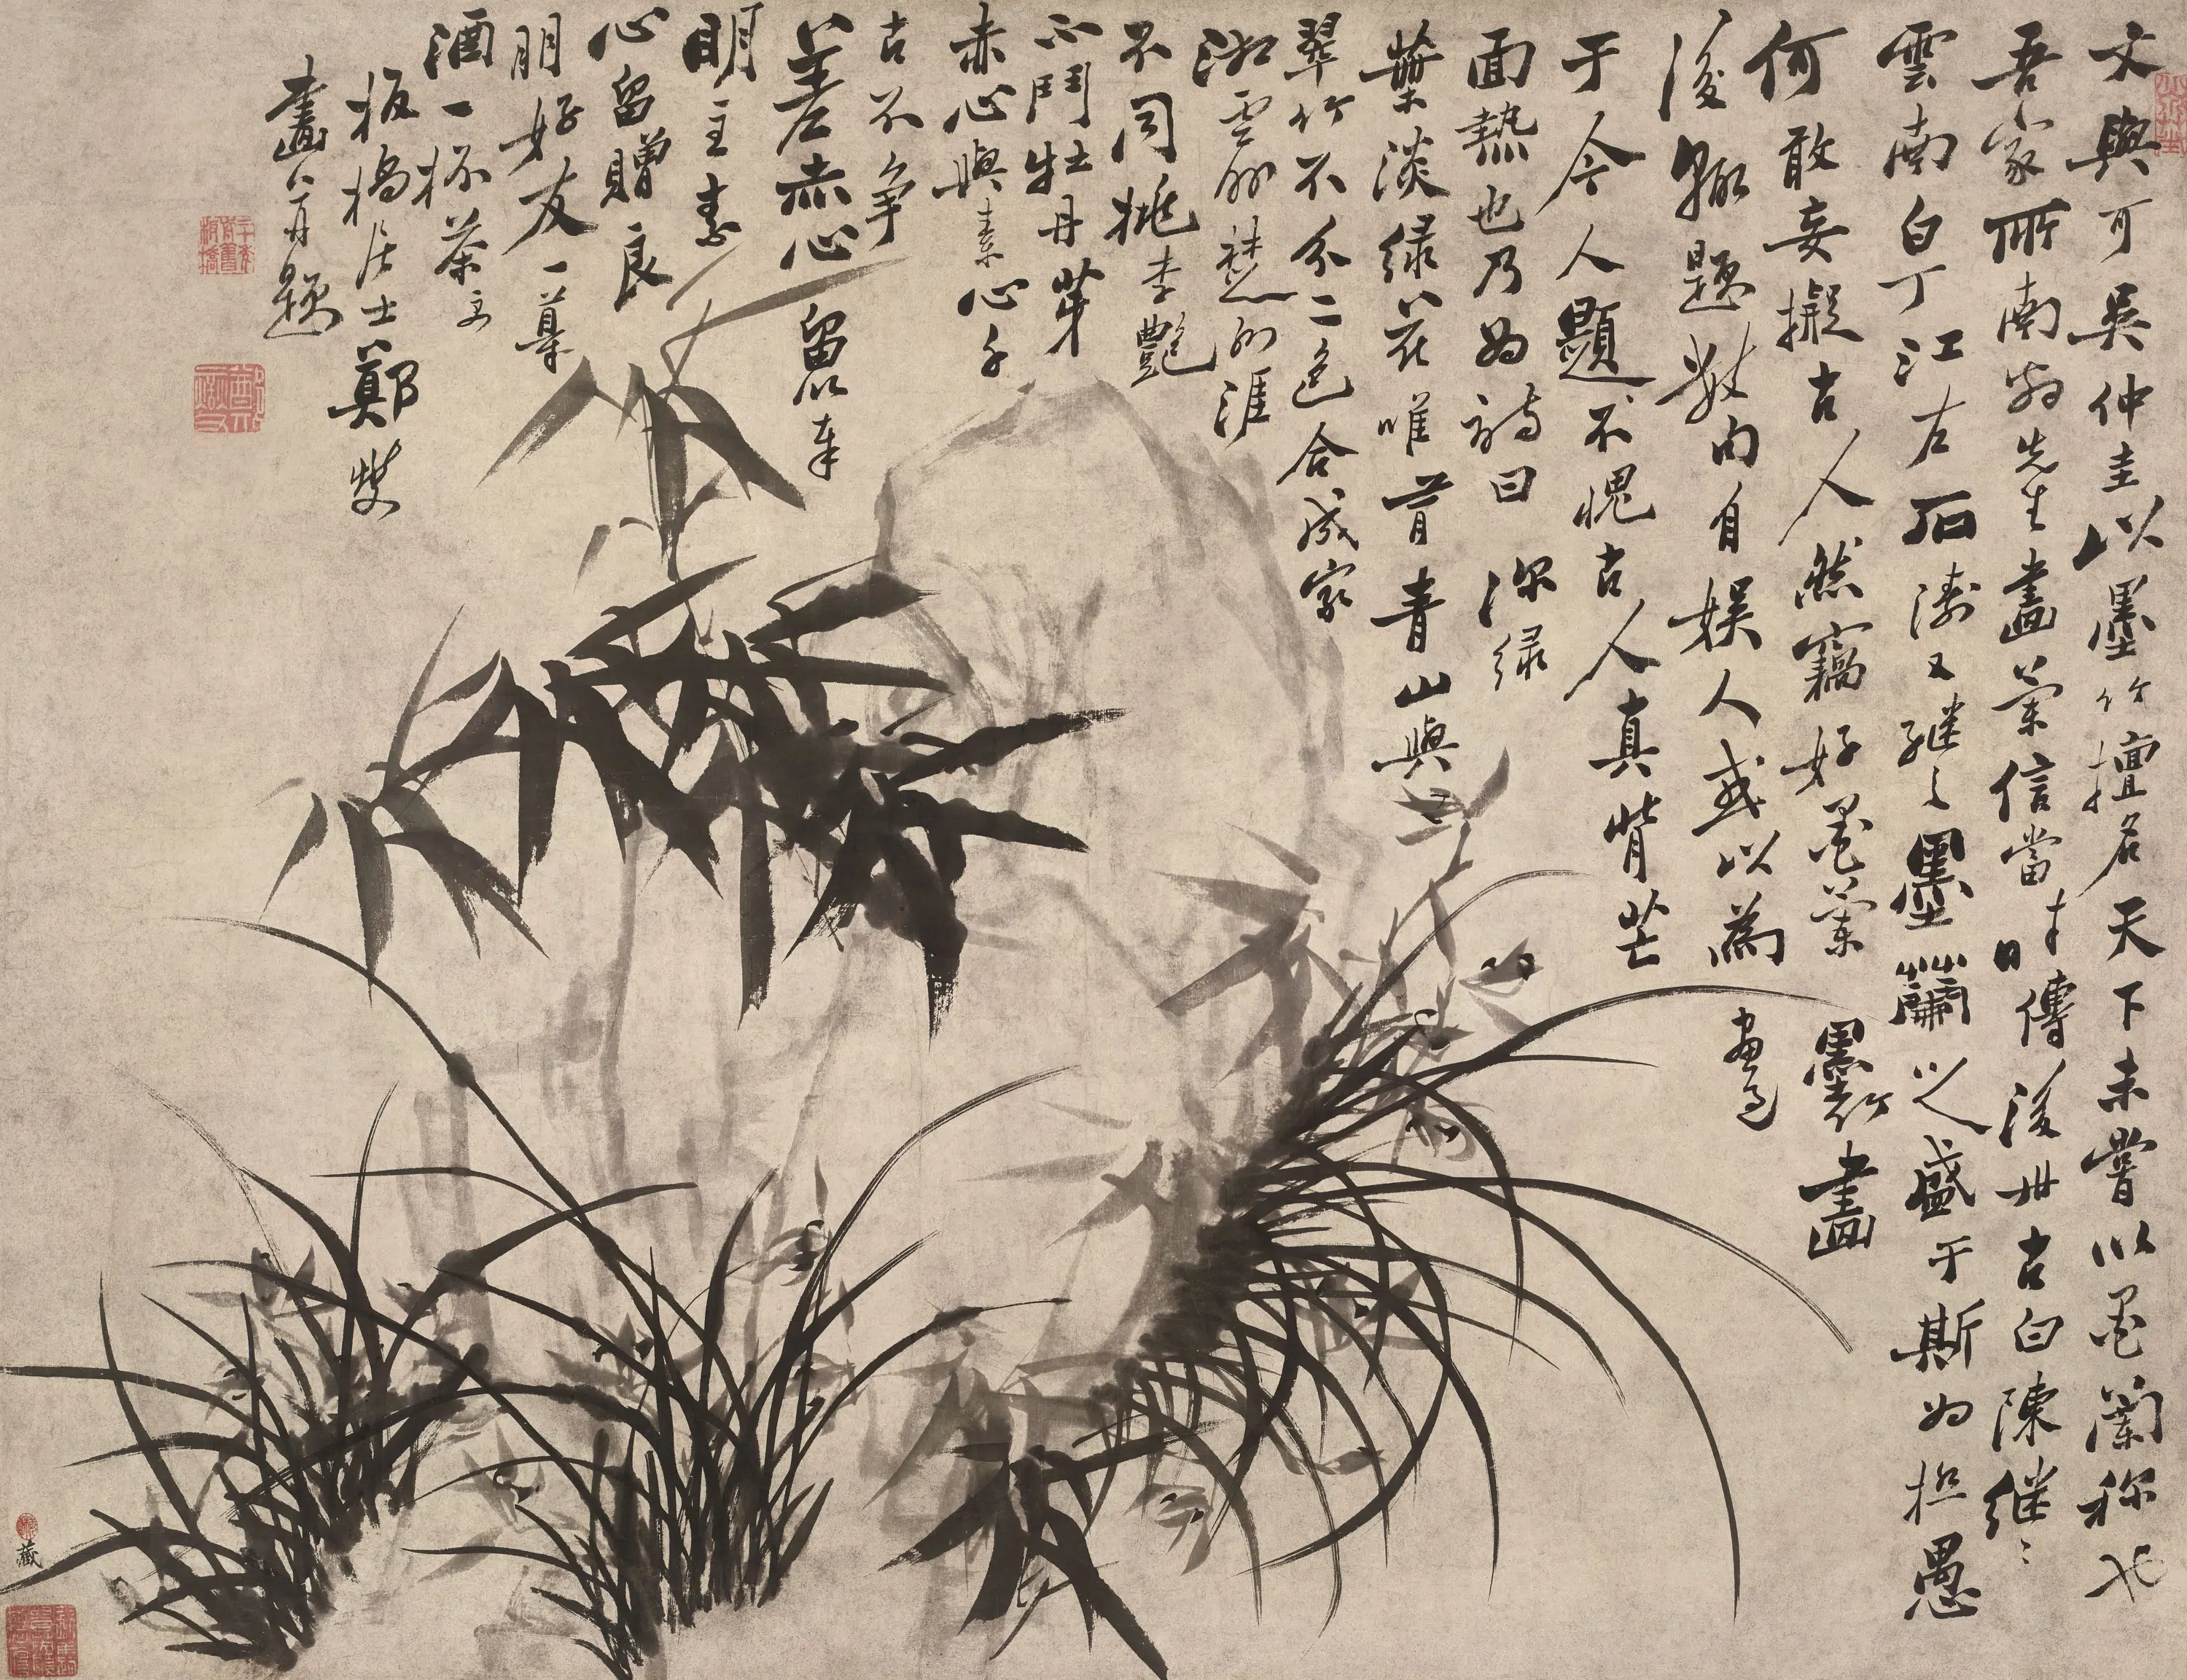 文與可吳仲圭以墨竹擅名天下未嘗以墨蘭称也
吾家所南翁先生畫蘭信當時傳後世古白陳继〻
雲南白丁江左石濤又继之墨蘭以之盛于斯为極愚
何敢妄擬古人然竊好墨蘭墨竹畫
後輙題數句自娱人或以為畫過
于今人題不愧古人真背芒
面熱也乃为詩曰 深绿
葉淡绿花唯肯青山與
翠竹不分二色合成家
湘雲楚涯
不同桃李艷
不鬥牡丹芽
赤心與素心千
古不争
差赤心留以奉
明主素
心留贈良
朋好友一尊
酒一杯茶
板橋居士鄭燮
畫并題
藏